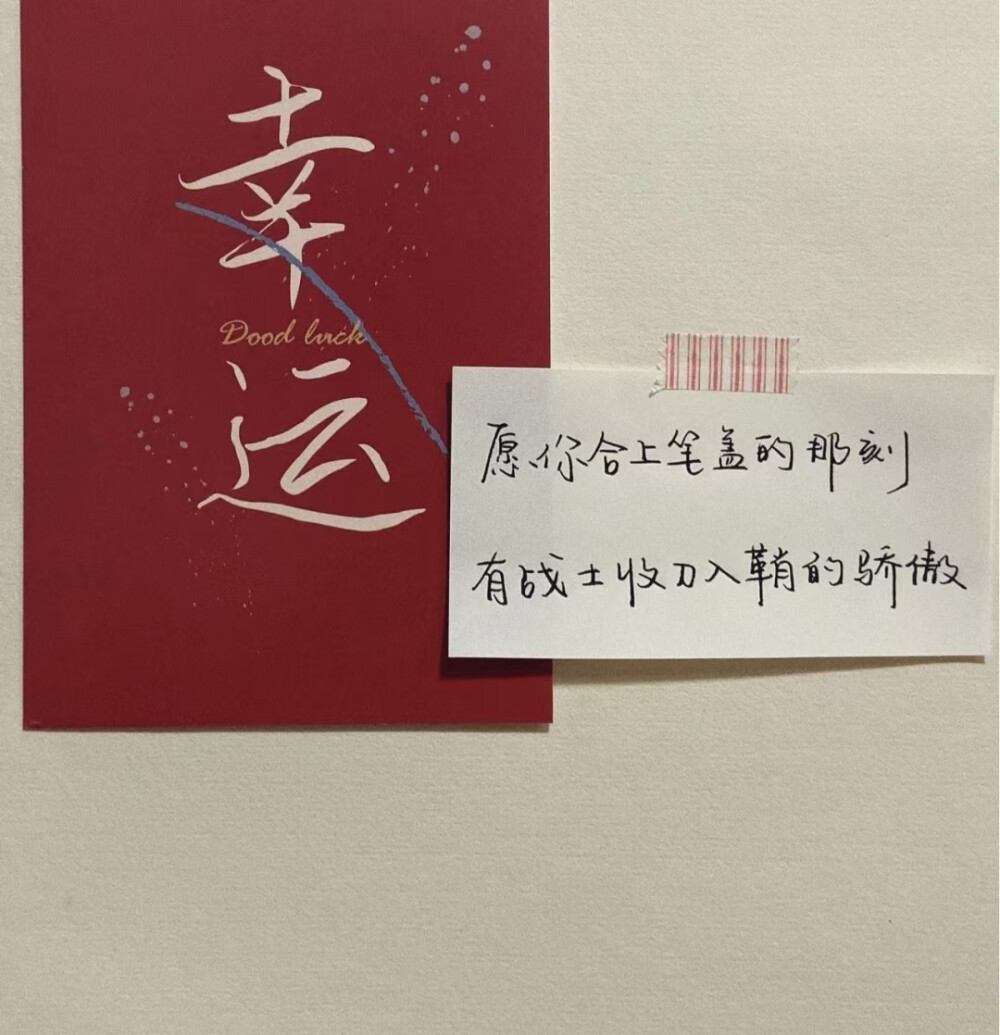 幸
Dood luck
运
愿你合上笔盖的那刻
有战士收刀入鞘的骄傲